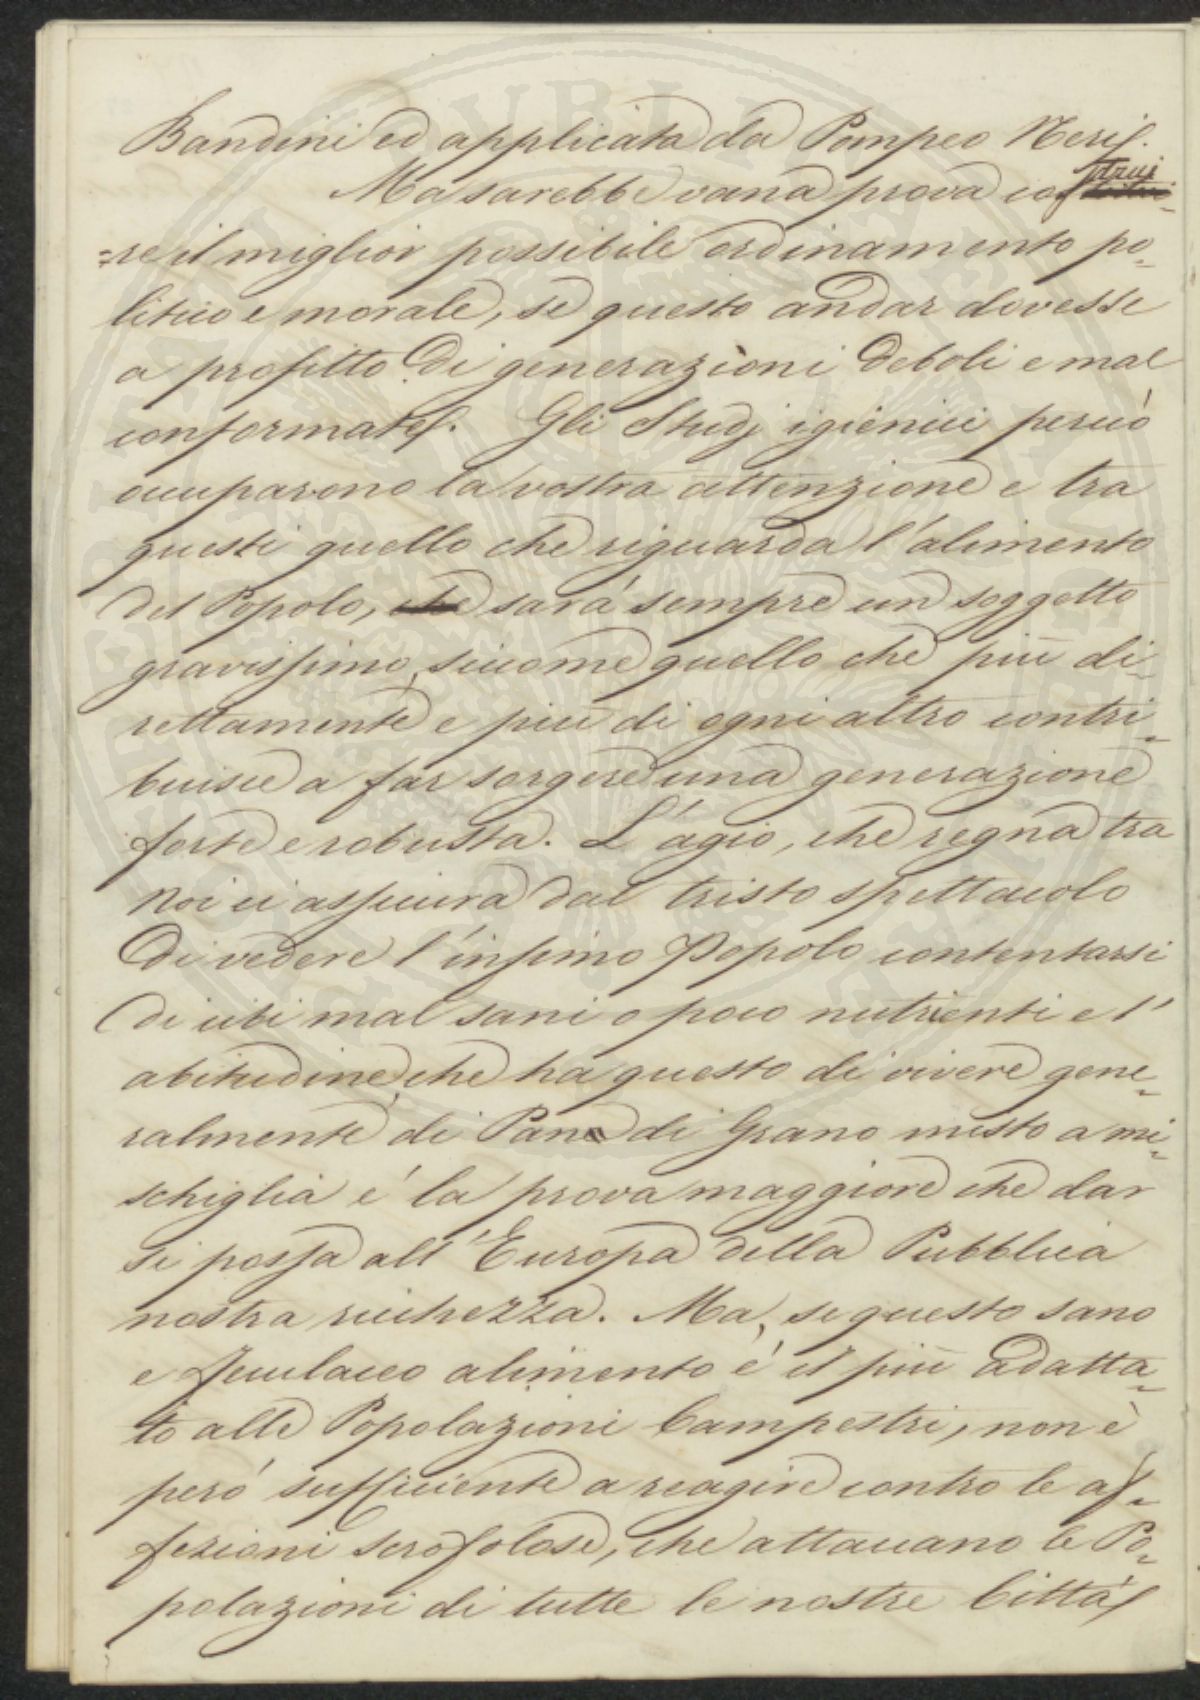 Bandini ed applicata da Pompeo Neri.
Ma sarebbe vana prova costrui-
=re il miglior possibile ordinamento po-
litico e morale, se questo andar dovesse
a profitto di generazioni deboli e mal
conformate. Gli Studj igienici perciò
occuparono la vostra attenzione e tra
questi quello che riguarda l'alimento
del Popolo, che sarà sempre un soggetto
gravissimo, siccome quello che più di-
rettamente e più di ogni altro contri-
buisce a far sorgere una generazione
forte e robusta. L'agio, che regna tra
noi ci assicura dal tristo spettacolo
di vedere l'infimo Popolo contentarsi
di cibi mal sani o poco nutrienti e l'
abitudine, che ha questo di vivere gene-
ralmente di Pane di Grano misto a mi-
schiglia é la prova maggiore che dar
si possa all'Europa della Pubblica
nostra ricchezza. Ma, se questo sano
e feculaceo alimento é il più adatta-
to alle Popolazioni Campestri, non è
peró sufficiente a reagire contro le af-
fezioni scrofolose, che attaccano le Po-
polazioni di tutte le nostre Città